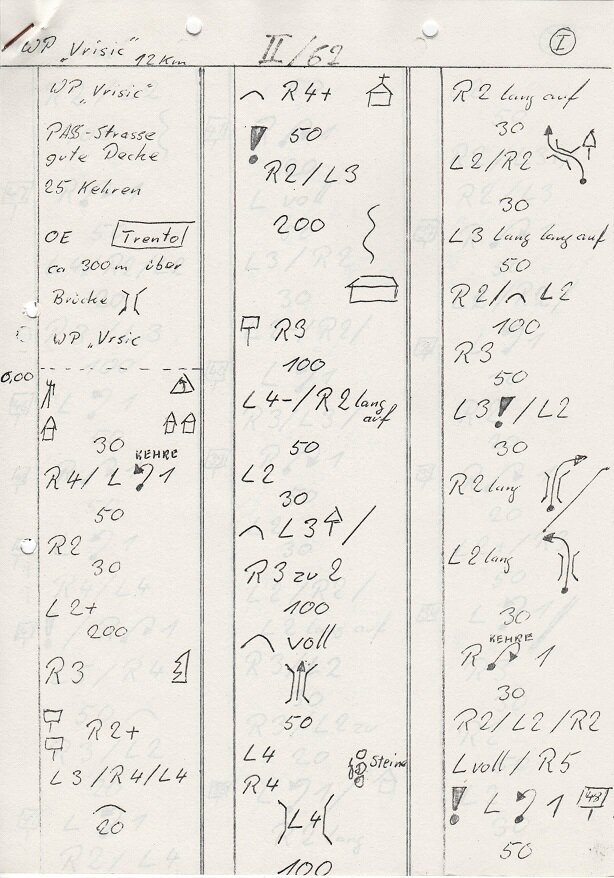 WP „Vrisic" 12 Km
II/62
I
WP „Vrisic"
PAß-Strasse
gute Decke
25 Kehren
OE Trento
ca 300m über
Brücke
WP „Vrsic
0,00
30
KEHRE
R4/L 1
50
R2
30
L2+
200
R3
R2+
L3/R4/L4
20
R4+
! 50
R2/L3
200
R3
100
L4-/R2 lang
auf
50
L2
30
L3 /
R3 zu 2
100
voll
50
L4
Steine
R4
L4
100
R2 lang auf
30
L2/R2
30
L3 lang lang auf
50
R2/ L2
100
R3
50
L3!/L2
30
R2 lang
L2 lang
30
KEHRE
R 1
30
R2/L2/R2
L voll/R5
! L 1 48
50